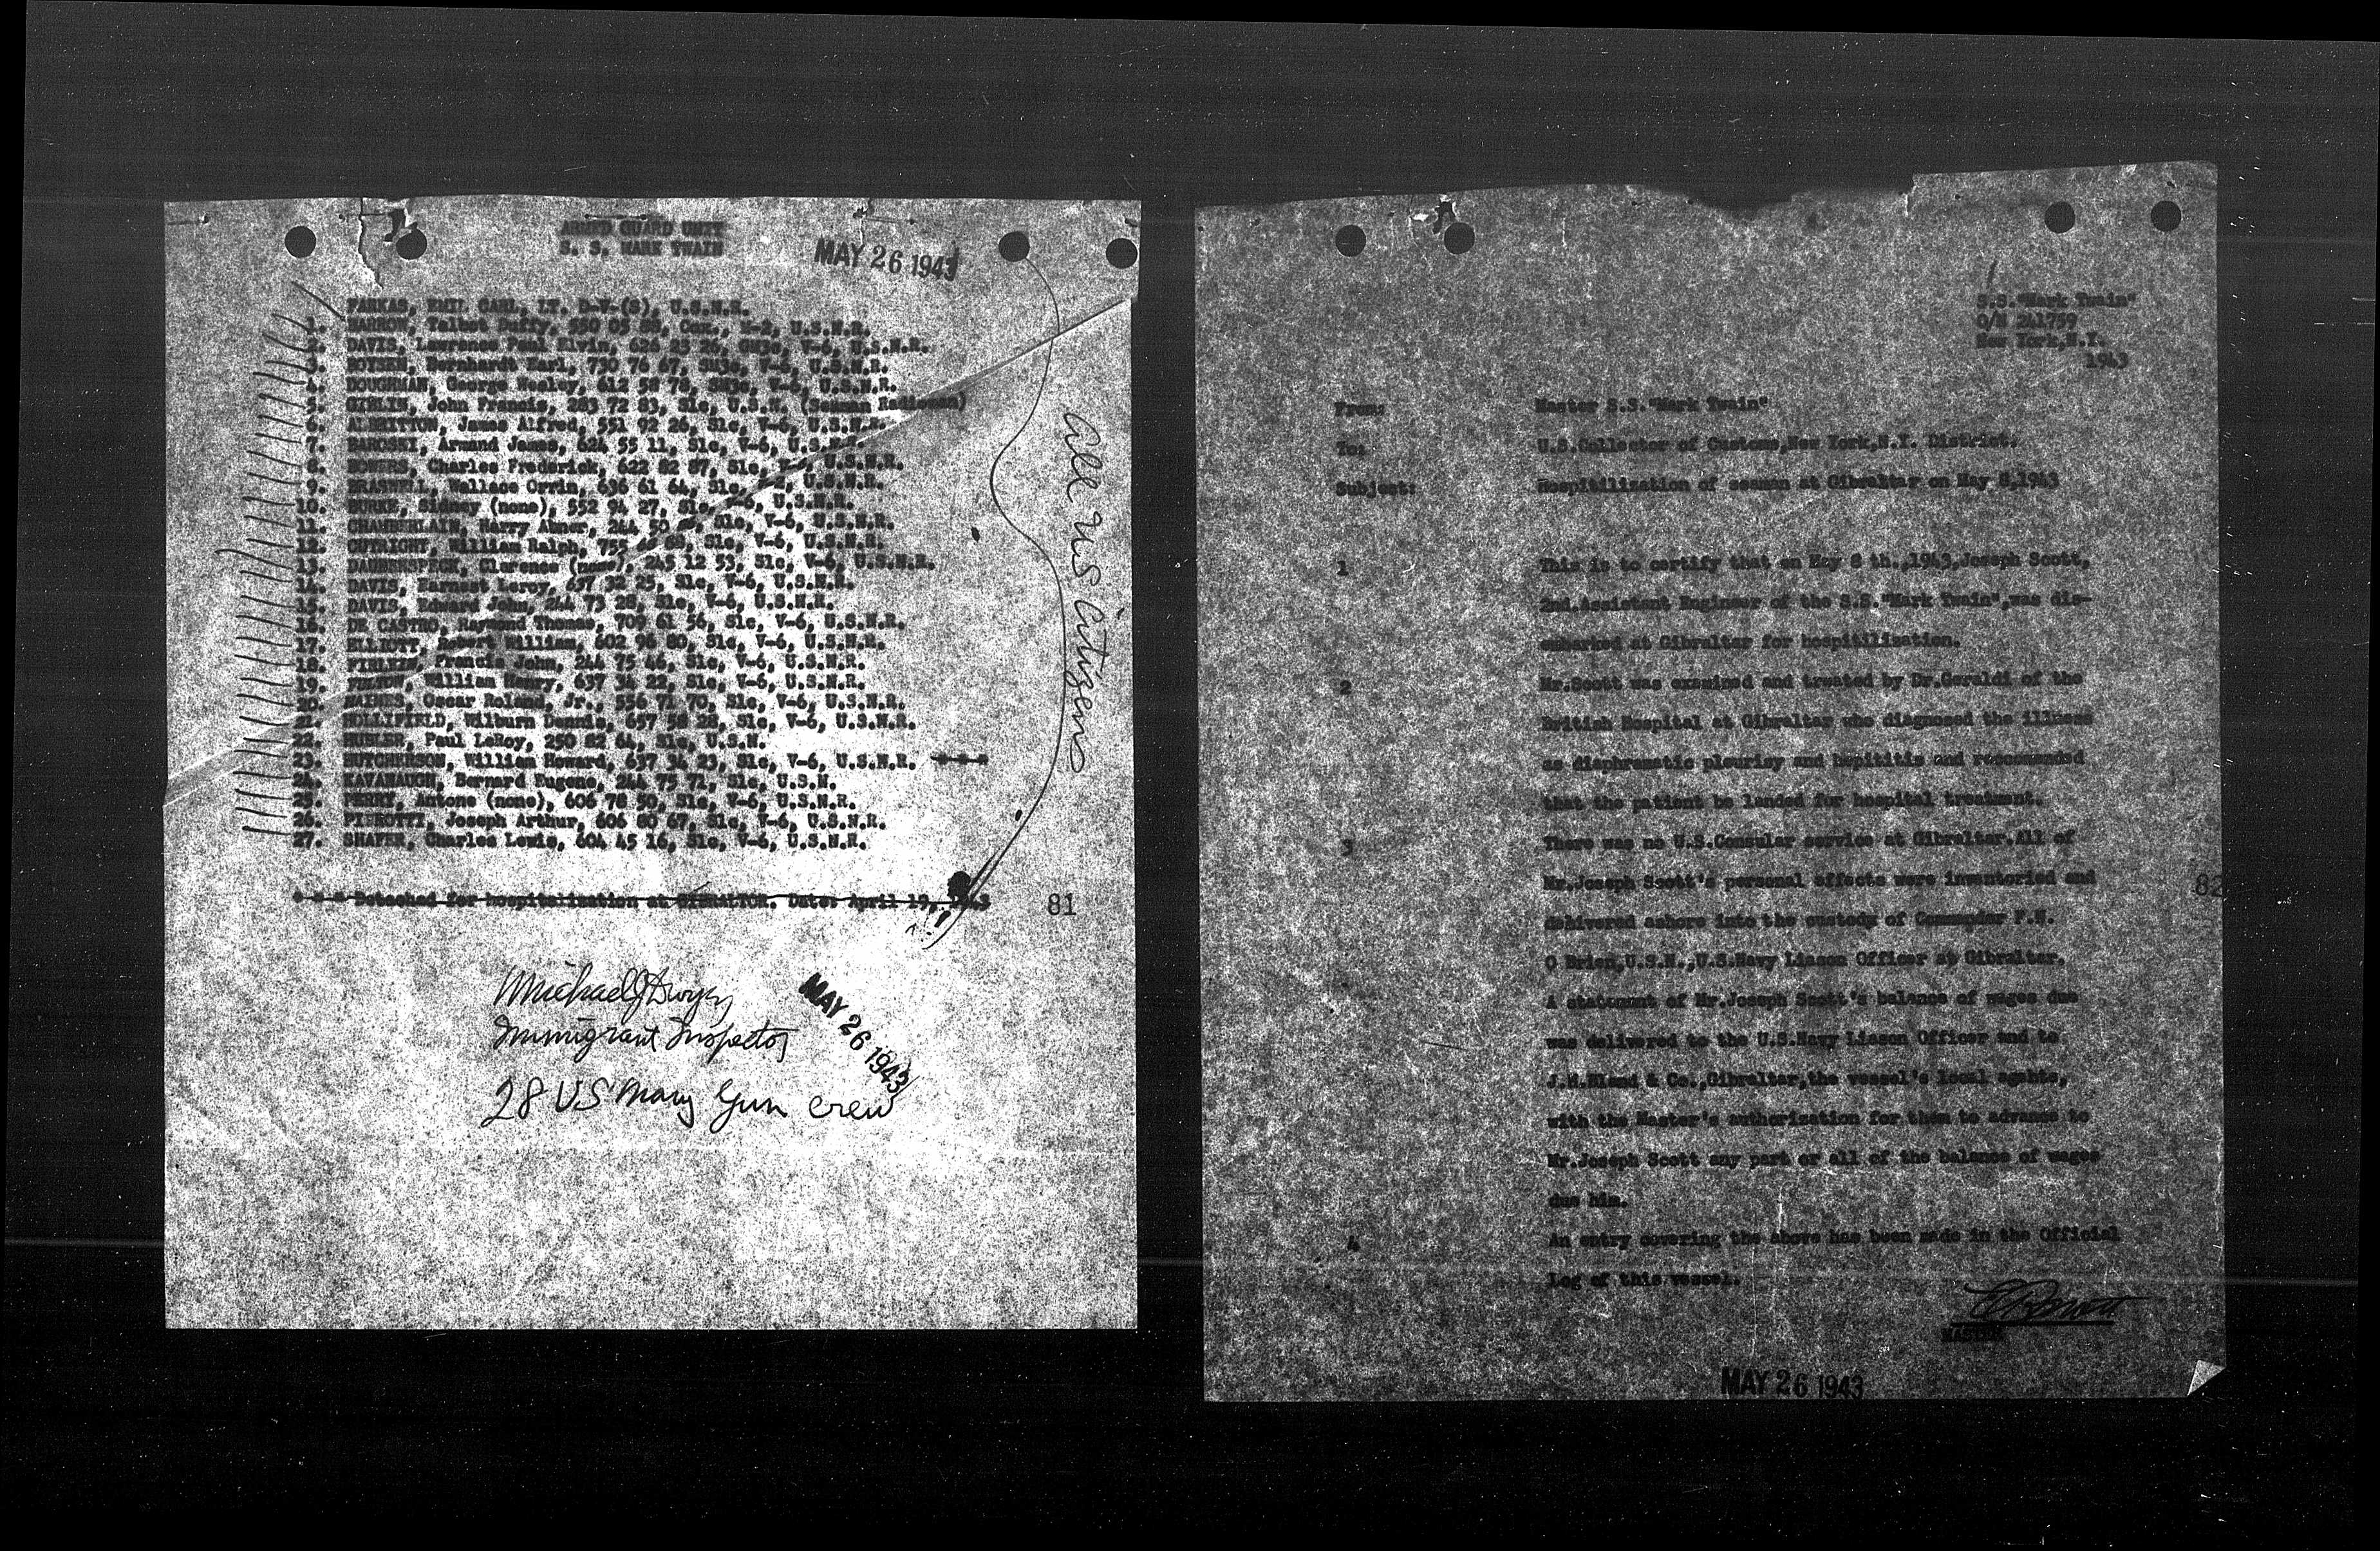 ARMED GUARD UNIT
S. S. MARK TWAIN
MAY 26 1943
FARKAS, EMIL CARL, LT. D-V-(S), U.S.N.R.
1. Talbot Duffy, 550 05 Cox., U.S.N.R.
2. DAVIS, Lawrence Paul Elvin, 626 23 26, GM3c, V-6, U.S.N.R.
3. 730 76 67, SM3c, V-6, U.S.N.R.
4. DOUGHMAN, George Wesley, 612 58 78, SM3c, V-6, U.S.N.R.
5. GIBLIN, John Francis, 283 72 83, S1c, U.S.N. (Seaman Radioman)
6. ALBRITTON, James Alfred, 551 92 26, S1c, V-6, U.S.N.R.
7. Armand James, 624 55 11, S1c, V-6, U.S.N.R.
8. BOWERS, Charles Frederick, 622 82 87, S1c, U.S.N.R.
9. BRASWELL, Wallace Orvin, 636 61 64, S1c, U.S.N.R.
10. BURKE, Sidney (none), 552 94 27, S1c, V-6, U.S.N.R.
11. CHAMBERLAIN, Harry Abner, 244 50 S1c, V-6, U.S.N.R.
12. CUTRIGHT, William Ralph, S1c, V-6, U.S.N.R.
13. DAUBENSPECK, Clarence (none), 245 12 53, S1c, V-6, U.S.N.R.
14. DAVIS, Earnest Leroy, 657 32 25, S1c, V-6, U.S.N.R.
15. DAVIS, Edward John, 244 73 28, S1c, V-6, U.S.N.R.
16. DE CASTRO, Raymond Thomas, 709 61 56, S1c, V-6, U.S.N.R.
17. ELLIOTT, Robert William, 602 96 80, S1c, V-6, U.S.N.R.
18. Francis John, 244 75 46, S1c, V-6, U.S.N.R.
19. William Henry, 637 34 22, S1c, V-6, U.S.N.R.
20. HAINES, Oscar Roland, Jr., 556 71 70, S1c, V-6, U.S.N.R.
21. HOLLIFIELD, Wilburn Dennis, 657 58 28, S1c, V-6, U.S.N.R.
22. Paul LeRoy, 250 82 64, S1c, U.S.N.
23. HUTCHERSON, William Howard, 637 34 23, S1c, V-6, U.S.N.R. ***
24. KAVANAUGH, Bernard Eugene, 244 75 71, S1c, U.S.N.
25. PERRY, Antone (none), 606 78 50, S1c, V-6, U.S.N.R.
26. PIEROTTI, Joseph Arthur, 606 80 67, S1c, V-6, U.S.N.R.
27. SHAFER, Charles Lewis, 604 45 16, S1c, V-6, U.S.N.R.
all US Citizens
* * * Detached for hospitalization at GIBRALTOR. Date: April 19, 1943
81
Michael J Dwyer
Immigrant Inspector
MAY 26 1943
28 US Navy Gun crew
S.S."Mark Twain"
O/N 241759
New York,N.Y.
1943
From: Master S.S."Mark Twain"
To: U.S.Collector of Customs,New York,N.Y. District.
Subject: Hospitilization of seaman at Gibraltar on May 8,1943
1 This is to certify that on May 8 th.,1943,Joseph Scott,
2nd.Assistant Engineer of the S.S."Mark Twain",was dis-
embarked at Gibraltar for hospitilization.
2 Mr.Scott was examined and treated by Dr.Geraldi of the
British Hospital at Gibraltar who diagnosed the illness
as diaphramatic pleurisy and hepititis and recommended
that the patient be landed for hospital treatment.
3 There was no U.S.Consular service at Gibraltar.All of
Mr.Joseph Scott's personal effects were inventoried and
delivered ashore into the custody of Commander F.N.
O Brien,U.S.N.,U.S.Navy Liason Officer at Gibraltar.
A statement of Mr.Joseph Scott's balance of wages due
was delivered to the U.S.Navy Liason Officer and to
J.H.Bland & Co.,Gibraltar,the vessel's local agents,
with the Master's authorization for them to advance to
Mr.Joseph Scott any part or all of the balance of wages
due him.
4 An entry covering the above has been made in the Official
Log of this vessel.
82
MASTER
MAY 26 1943